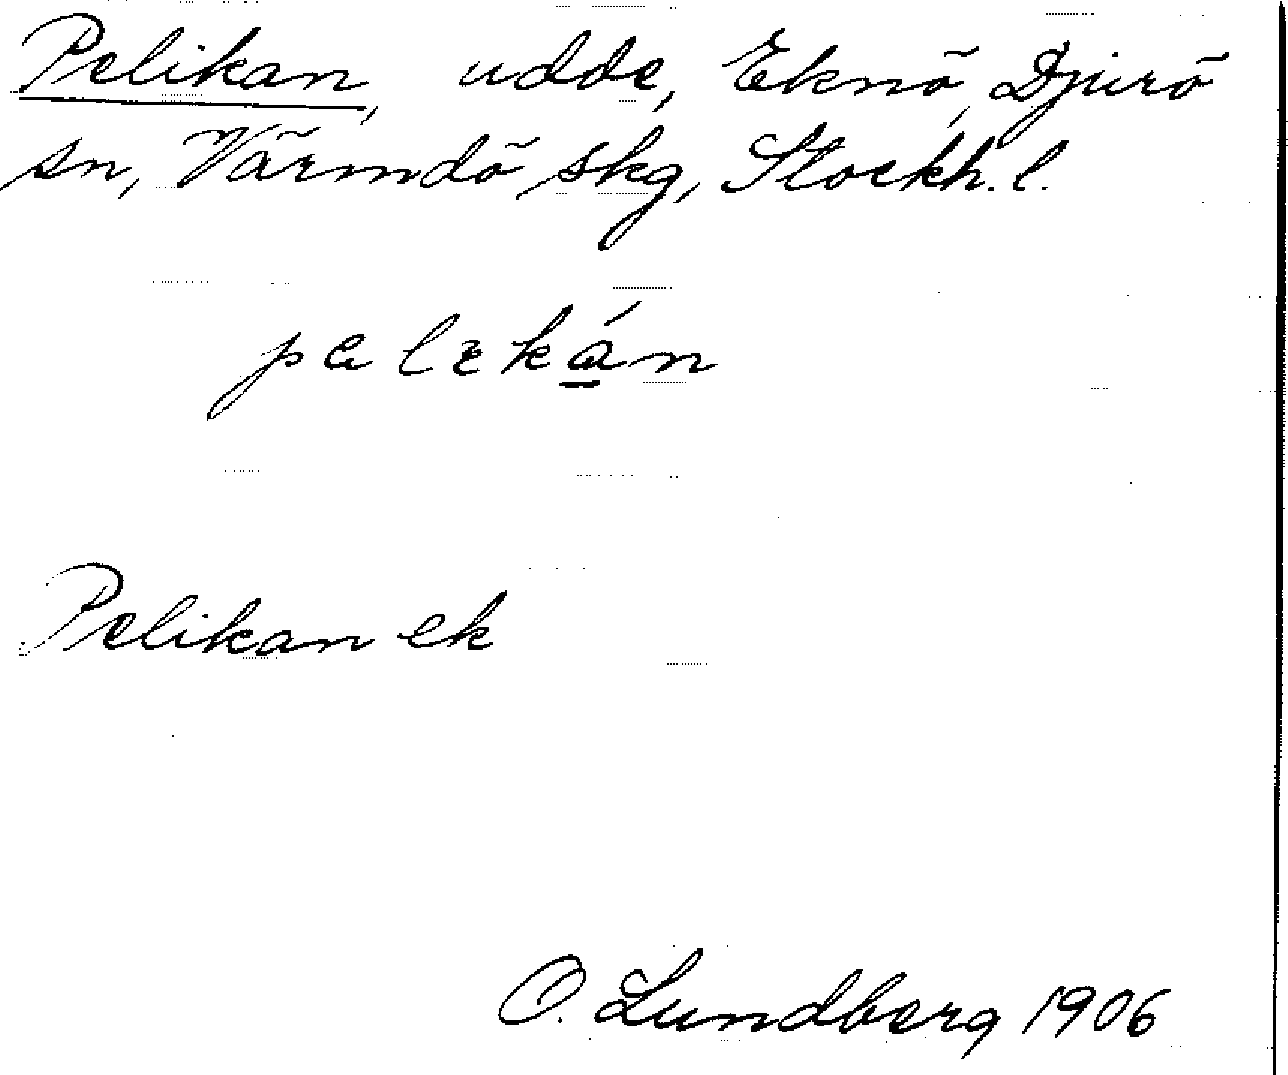 Pelikan, udde, Eknö, Djurö
sn, Värmdö skg, Stockh. l.
pelekán
Pelikan ek
O. Lundberg 1906